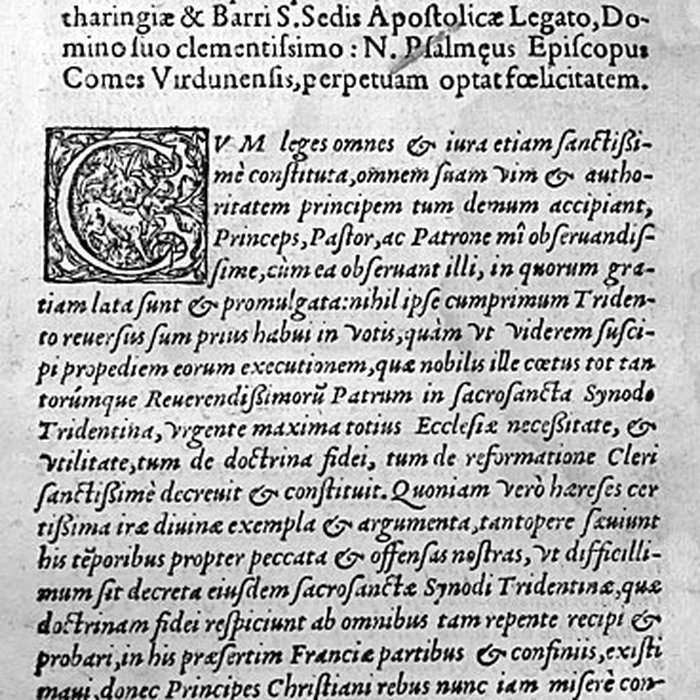 tharingiæ & Barri S. Sedis Apoſtolicæ Legato, Do-
mino ſuo clementiſsimo : N. Pſalmęus Epiſcopus
Comes Virdunenſis, perpetuam optat fœlicitatem.
CVM leges omnes & iura etiam ſanctißi-
mè conſtituta, omnem ſuam vim & autho-
ritatem principem tum demum accipiant,
Princeps, Paſtor, ac Patrone mî obſeruandiſ-
ſime, cùm ea obſeruant illi, in quorum gra-
tiam lata ſunt & promulgata: nihil ipſe cumprimum Triden-
to reuerſus ſum prius habui in votis, quàm vt viderem ſuſci-
pi propediem eorum executionem, quæ nobilis ille cœtus tot tan
torúmque Reuerendißimorũ Patrum in ſacroſancta Synodo
Tridentina, vrgente maxima totius Eccleſiæ neceßitate, &
vtilitate, tum de doctrina fidei, tum de reformatione Cleri
ſanctißimè decreuit & conſtituit. Quoniam verò hæreſes cer
tißima iræ diuinæ exempla & argumenta, tantopere ſæuiunt
his tẽporibus propter peccata & offenſas noſtras, vt difficilli-
mum ſit decreta eiuſdem ſacroſanctæ Synodi Tridentinæ, quæ
doctrinam fidei reſpiciunt ab omnibus tam repente recipi &
probari, in his præſertim Franciæ partibus & confiniis, exiſti
maui, donec Principes Chriſtiani rebus nunc iam miſerè con-